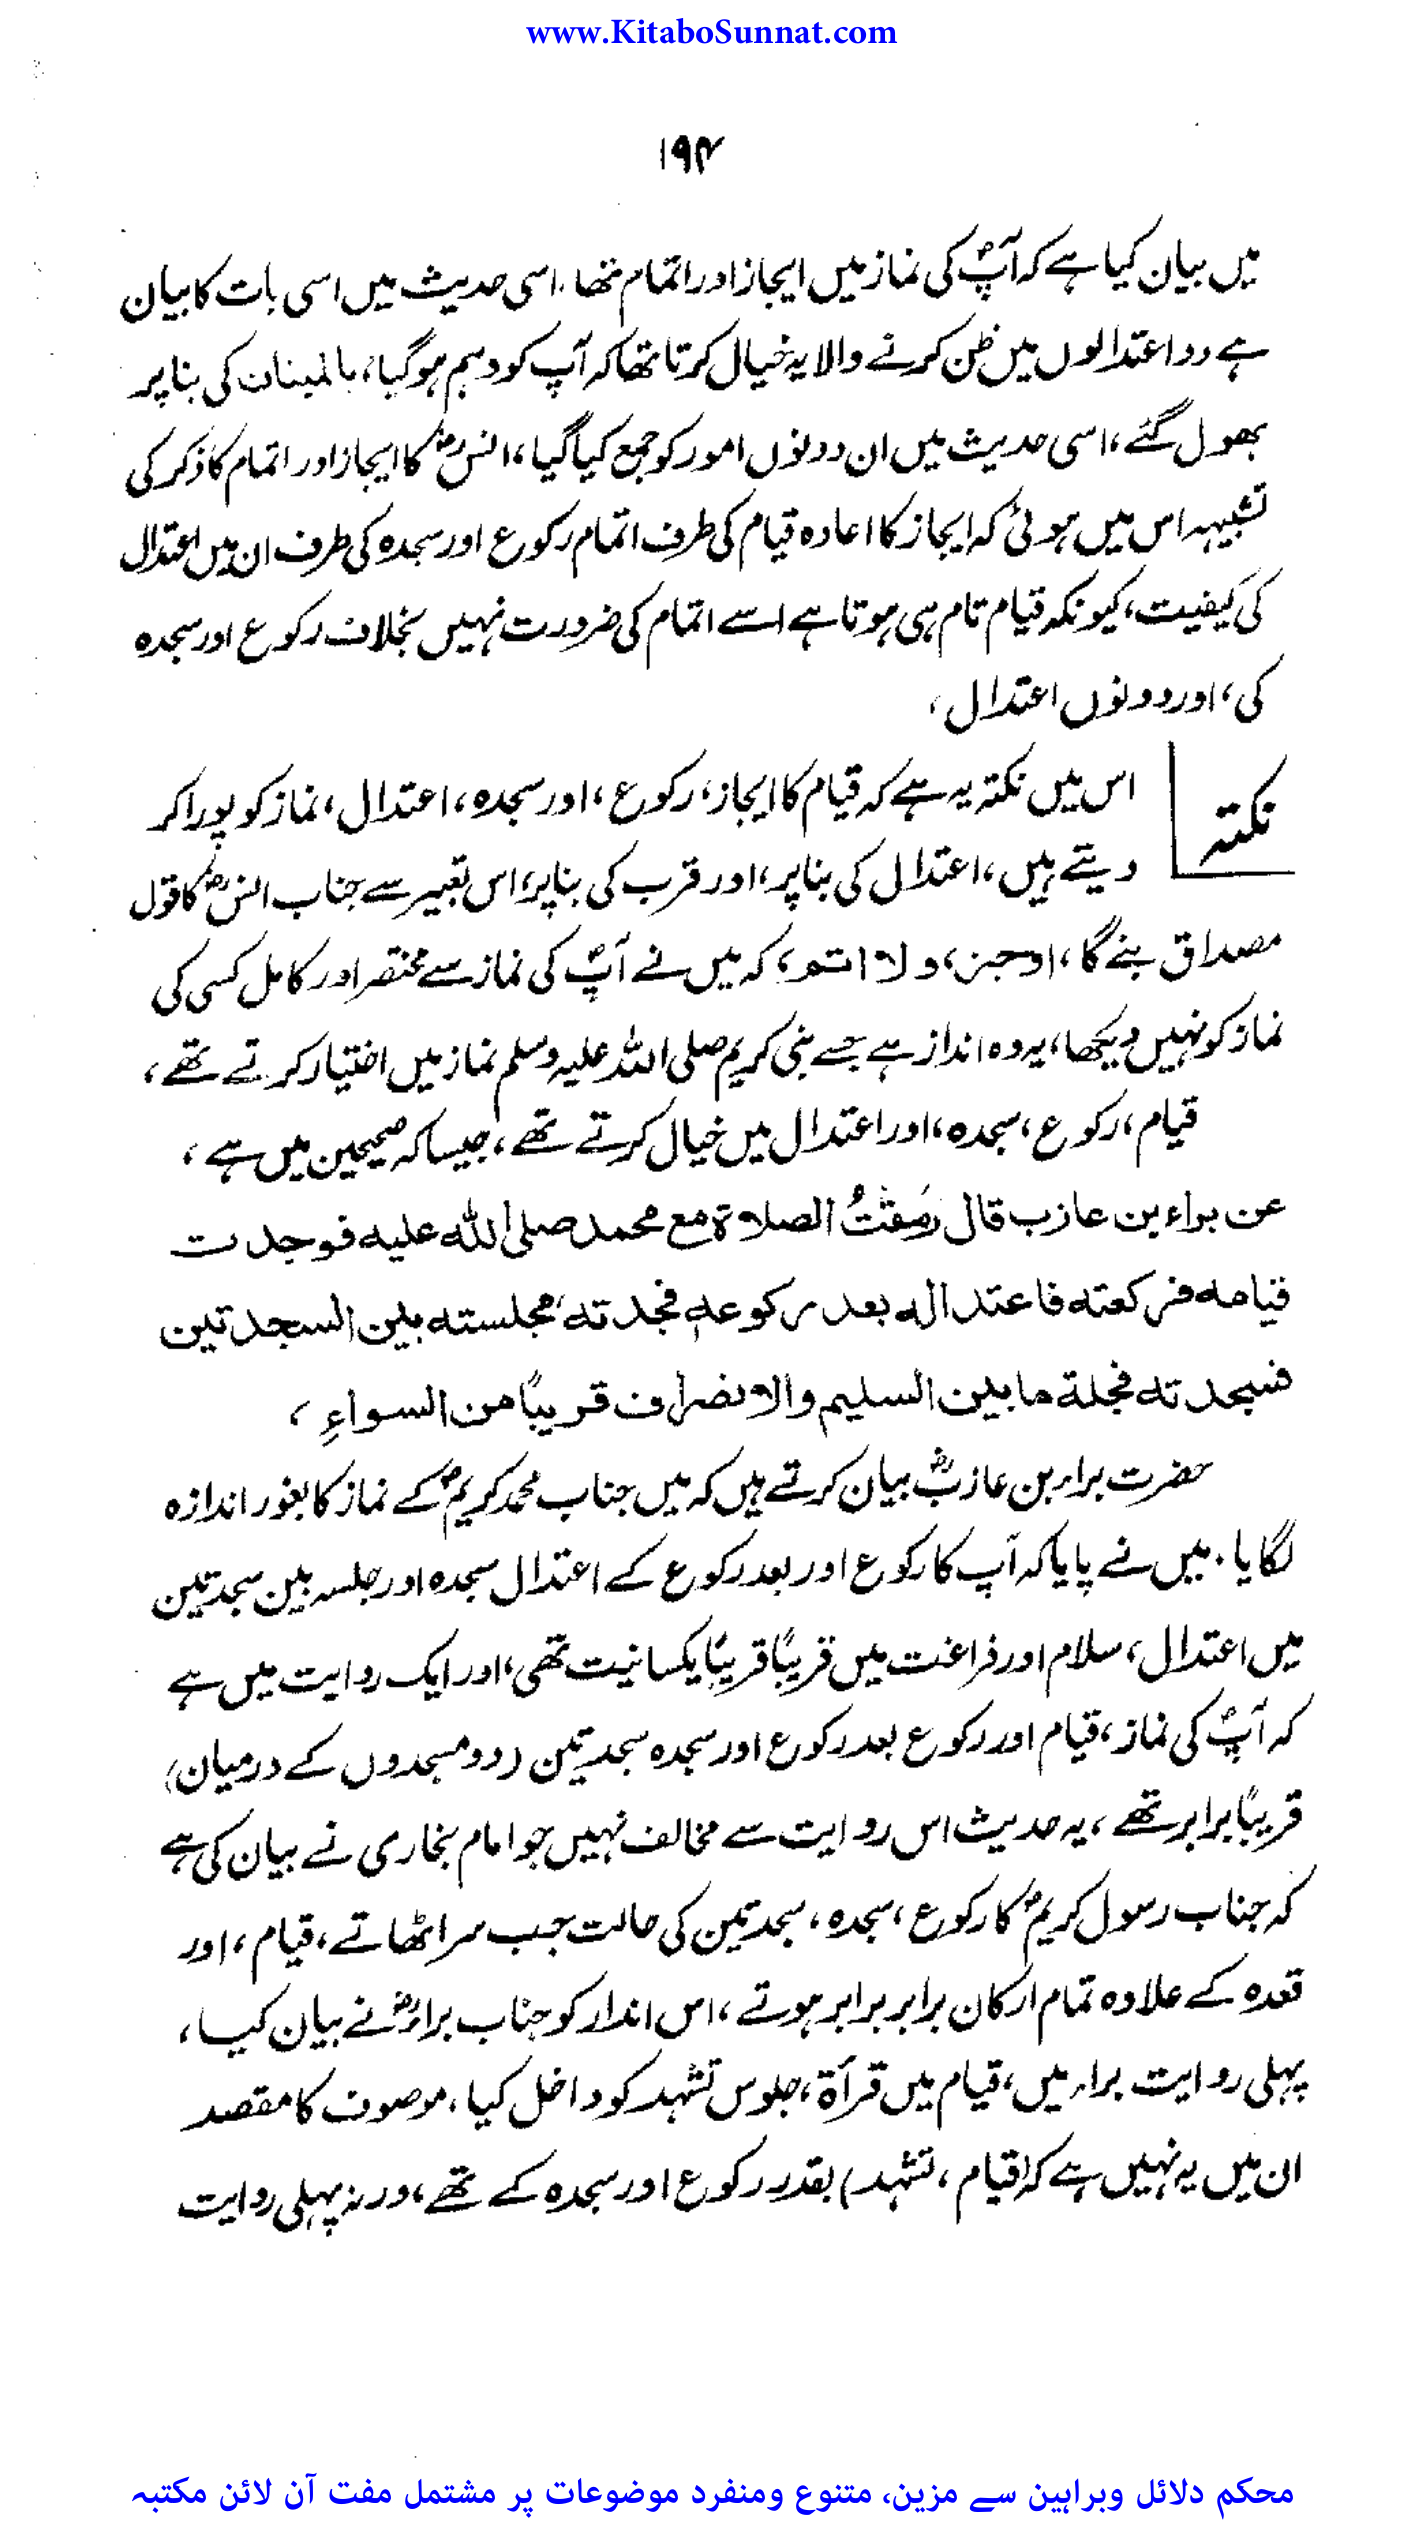 www.KitaboSunnat.com
۱۹۴
میں بیان کیا ہے کہ آپؐ کی نماز میں ایجاز اور اتمام تھا، اسی حدیث میں اسی بات کا بیان
ہے دو اعتدالوں میں ظن کرنے والا یہ خیال کرتا تھا کہ آپ کو وہم ہو گیا، یا لمینان کی بنا پر
بھول گئے، اسی حدیث میں ان دونوں امور کو جمع کیا گیا، انسؓ کا ایجاز اور اتمام کا ذکر کی
تشبیہہ اس میں ہوئی کہ ایجاز کا اعادہ قیام کی طرف اتمام رکوع اور سجدہ کی طرف ان میں اعتدال
کی کیفیت، کیونکہ قیام تام ہی ہوتا ہے اسے اتمام کی ضرورت نہیں بخلاف رکوع اور سجدہ
کی، اور دونوں اعتدال،
نکتہ
اس میں نکتہ یہ ہے کہ قیام کا ایجاز، رکوع، اور سجدہ، اعتدال، نماز کو پورا کر
دیتے ہیں، اعتدال کی بنا پر، اور قرب کی بنا پر، اس تعبیر سے جناب انسؓ کا قول
مصداق بنے گا، اوجز، ولا اتم، کہ میں نے آپؐ کی نماز سے مختصر اور کامل کسی کی
نماز کو نہیں دیکھا، یہ وہ انداز ہے جسے بنی کریم صلی اللہ علیہ وسلم نماز میں اختیار کرتے تھے،
قیام، رکوع، سجدہ، اور اعتدال میں خیال کرتے تھے، جیسا کہ صحیحین میں ہے،
عن براء بن عازب قال رَمَقْتُ الصلاة مع محمد صلی اللہ علیه فوجدت
قیامه فرکعته فاعتداله بعد رکوعه فجدته، مجلسته بین السجدتین
فسجدته فجلة ما بین السلیم والانضراف قریبًا من السواءِ،
حضرت براء بن عازبؓ بیان کرتے ہیں کہ میں جناب محمد کریمؐ کے نماز کا بغور اندازہ
لگایا۔ میں نے پایا کہ آپ کا رکوع اور بعد رکوع کے اعتدال سجدہ اور جلسہ بین سجدتین
میں اعتدال، سلام اور فراغت میں قریبًا قریبًا یکسانیت تھی، اور ایک روایت میں ہے
کہ آپؐ کی نماز، قیام اور رکوع بعد رکوع اور سجدہ سجدتین (دو مسجدوں کے درمیان)
قریبًا برابر تھے، یہ حدیث اس روایت سے مخالف نہیں جو امام بخاری نے بیان کی ہے
کہ جناب رسول کریمؐ کا رکوع، سجدہ، سجدتین کی حالت جب سر اٹھاتے، قیام، اور
قعدہ کے علاوہ تمام ارکان برابر برابر ہوتے، اس انداز کو جناب براءؓ نے بیان کیا،
پہلی روایت براء میں، قیام میں قرأة، جلوس تشہد کو داخل کیا، موصوف کا مقصد
ان میں یہ نہیں ہے کہ (قیام، تشہد) بقدر رکوع اور سجدہ کے تھے، ورنہ پہلی روایت
محکم دلائل وبراہین سے مزین، متنوع ومنفرد موضوعات پر مشتمل مفت آن لائن مکتبہ